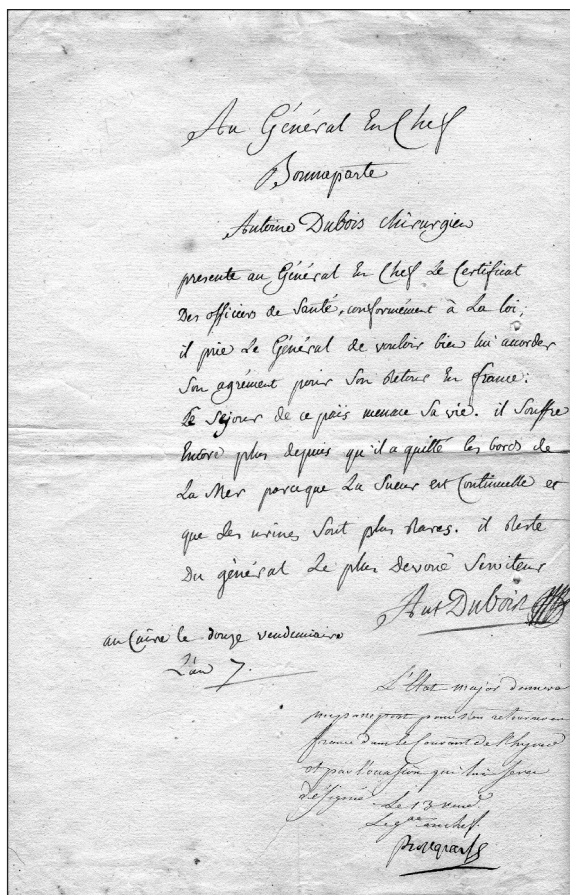 Au Général En Chef
Bonnaparte
Antoine Dubois chirurgien
presente au Général En Chef Le Certificat
Des officiers de Santé, conformément à La loi,
il prie Le Général de vouloir bien lui accorder
Son agrément pour Son Retour En france.
Le Sejour de ce païs menace Sa vie. il Souffre
Encore plus depuis qu'il a quitté les bords de
La Mer parceque La Sueur est Continuelle et
que Les urines Sont plus Rares. il Reste
Du général Le plus Devoué Serviteur
Ant Dubois
au Caire le douze vendemiaire
L'an 7.
L'Etat major donnera
un passeport pour s'en retourner en
france dans le Courant de
et par l'occasion qui lui sera
désignée. Le 13 vend.
Le gal en chef.